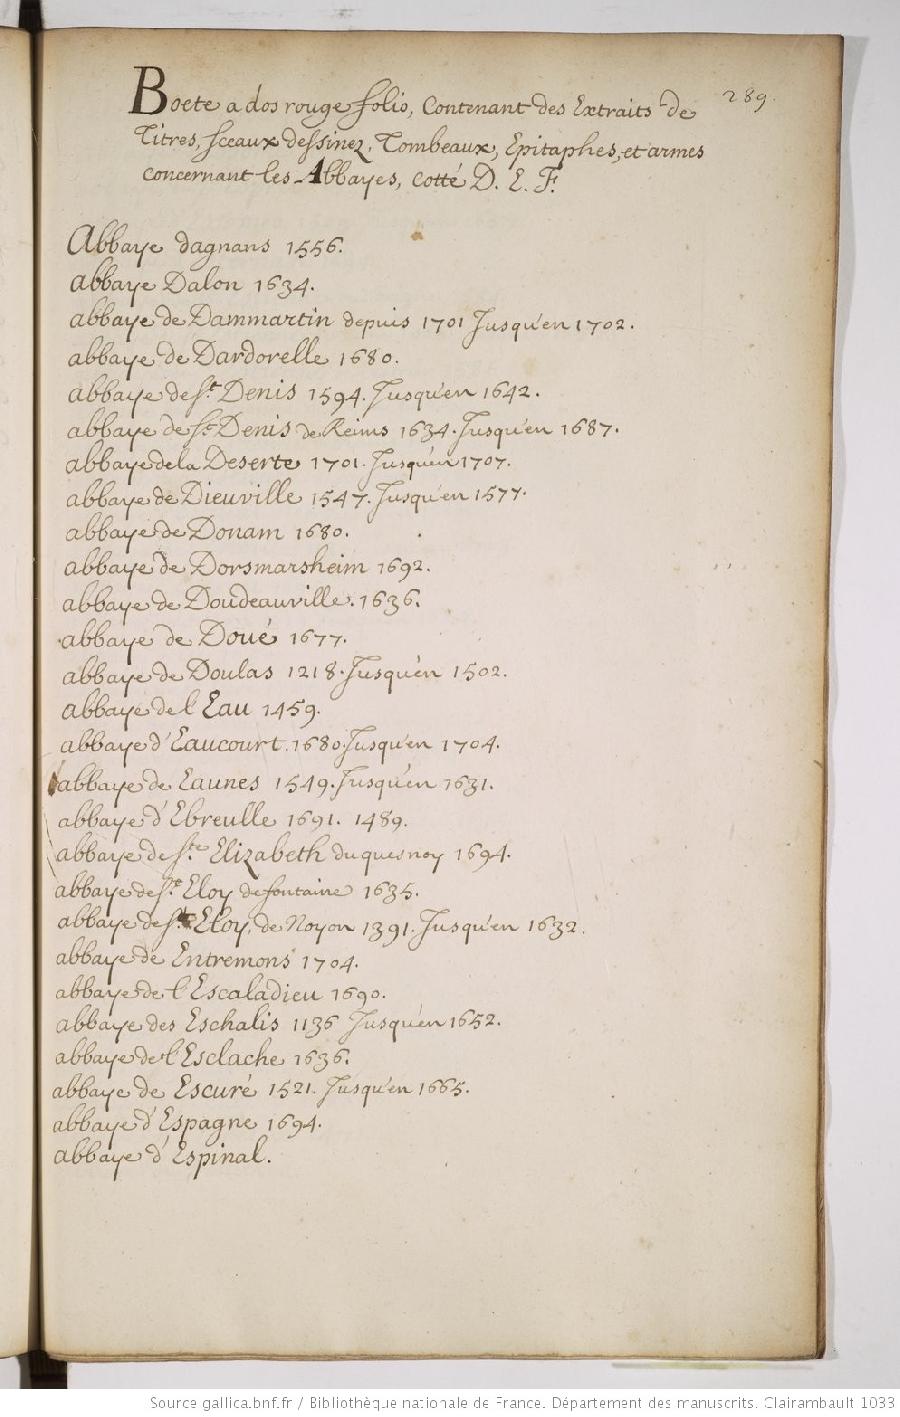 289.
Boete a dos rouge folio, Contenant des Extraits de
Titres, sceaux dessinez, Tombeaux, Epitaphes, et armes
concernant les Abbayes, cotté D. E. F.
Abbaye dagnans 1556.
abbaye Dalon 1634.
abbaye de Dammartin depuis 1701 Jusqu'en 1702.
abbaye de Dardorelle 1680.
abbaye de St. Denis 1594. Jusqu'en 1642.
abbaye de St. Denis de Reims 1634. Jusqu'en 1687.
abbaye de la Deserte 1701. Jusqu'en 1707.
abbaye de Dieuville 1547. Jusqu'en 1577.
abbaye de Donam 1680.
abbaye de Dorsmarsheim 1692.
abbaye de Doudeauville. 1636.
abbaye de Doué 1677.
abbaye de Doulas 1218. Jusqu'en 1502.
abbaye de l'Eau 1459.
abbaye d'Eaucourt. 1680. Jusqu'en 1704.
abbaye de Eaunes 1549. Jusqu'en 1631.
abbaye d'Ebreulle 1691. 1489.
abbaye de Ste. Elizabeth du quesnoy 1694.
abbaye de St. Eloy de fontaine 1635.
abbaye de St. Eloy, de Noyon 1391. Jusqu'en 1632.
abbaye de Entremons 1704.
abbaye de l'Escaladieu 1690.
abbaye des Eschalis 1136 Jusqu'en 1652.
abbaye de l'Esclache 1636.
abbaye de Escuré 1521. Jusqu'en 1665.
abbaye d'Espagne 1694.
abbaye d'Espinal.
Source gallica.bnf.fr / Bibliothèque nationale de France. Département des manuscrits. Clairambault 1033